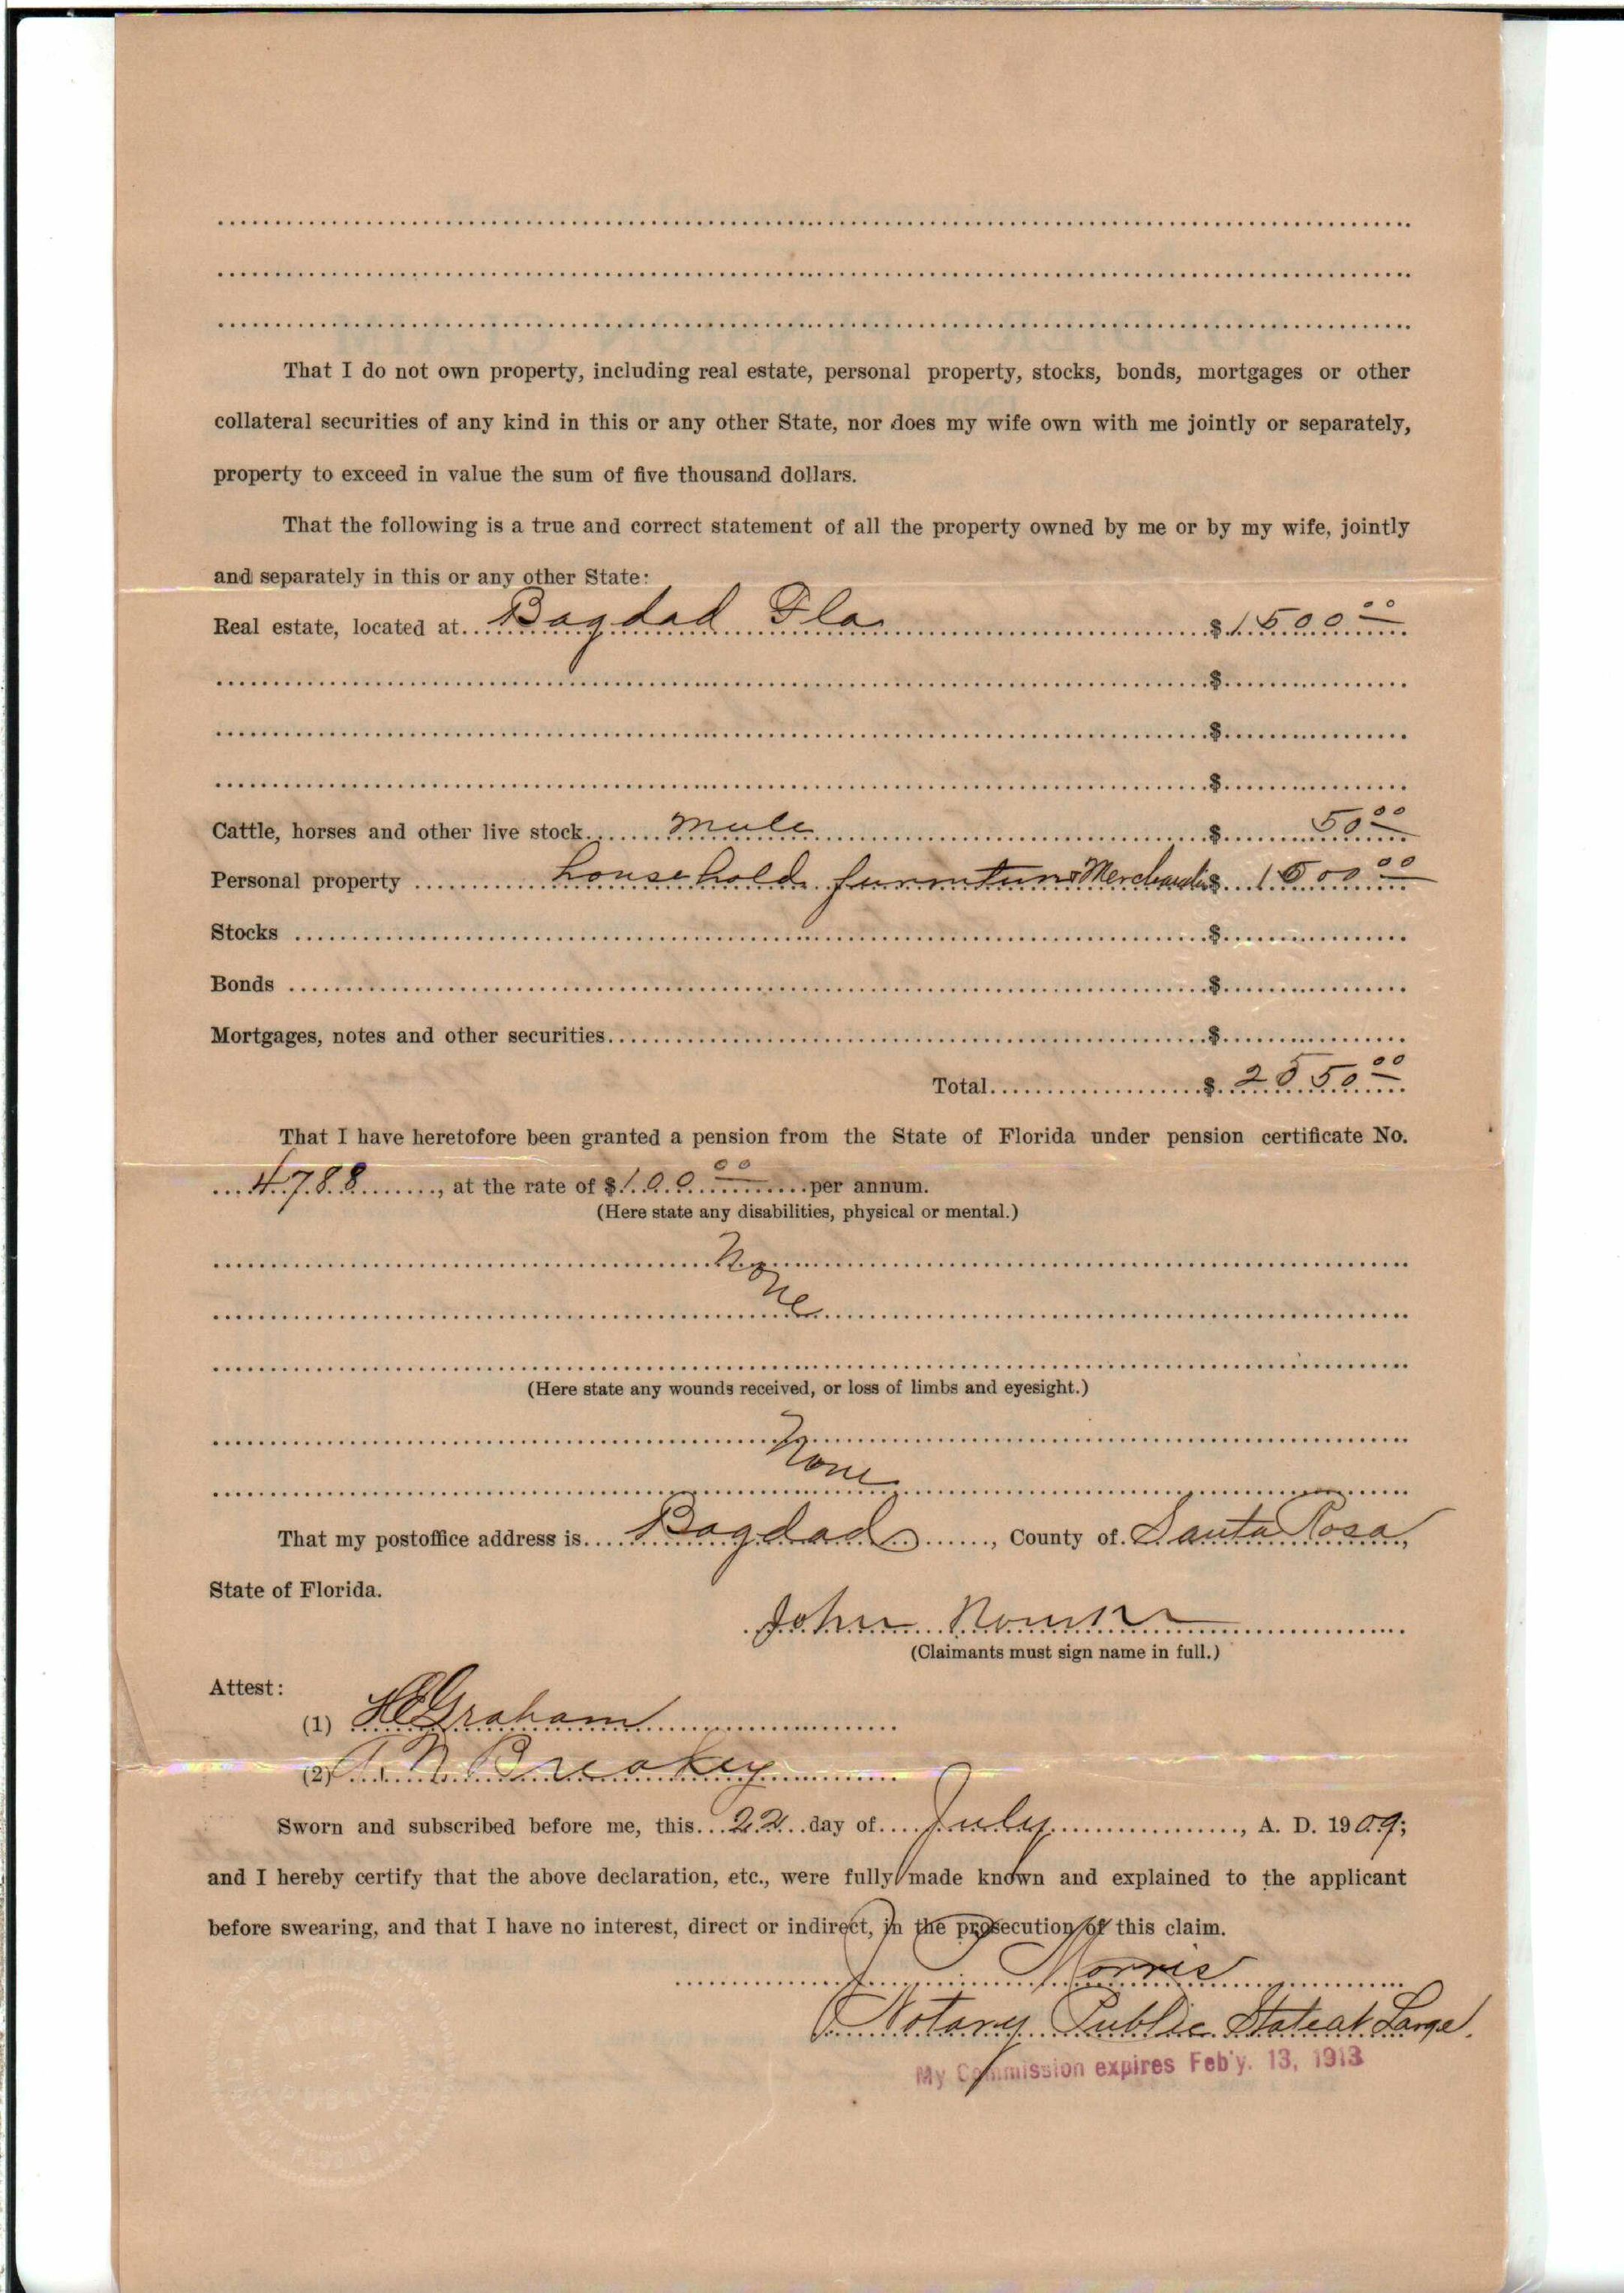 That I do not own property, including real estate, personal property, stocks, bonds, mortgages or other
collateral securities of any kind in this or any other State, nor does my wife own with me jointly or separately,
property to exceed in value the sum of five thousand dollars.
That the following is a true and correct statement of all the property owned by me or by my wife, jointly
and separately in this or any other State:
Real estate, located at Bagdad Fla $1500 00
$
$
$
Cattle, horses and other live stock Mule $ 50 00
Personal property household furniture Merchandis $ 1000 00
Stocks $
Bonds $
Mortgages, notes and other securities $
Total $ 2550 00
That I have heretofore been granted a pension from the State of Florida under pension certificate No.
4788, at the rate of $100 00 per annum.
(Here state any disabilities, physical or mental.)
None
(Here state any wounds received, or loss of limbs and eyesight.)
None
That my postoffice address is Bagdad, County of Santa Rosa,
State of Florida.
John
(Claimants must sign name in full.)
Attest:
(1) H E Graham
(2) N Breakey
Sworn and subscribed before me, this 22 day of July, A. D. 1909;
and I hereby certify that the above declaration, etc., were fully made known and explained to the applicant
before swearing, and that I have no interest, direct or indirect, in the prosecution of this claim.
Morris
Notary Public State at Large.
My Commission expires Feb'y. 13, 1913